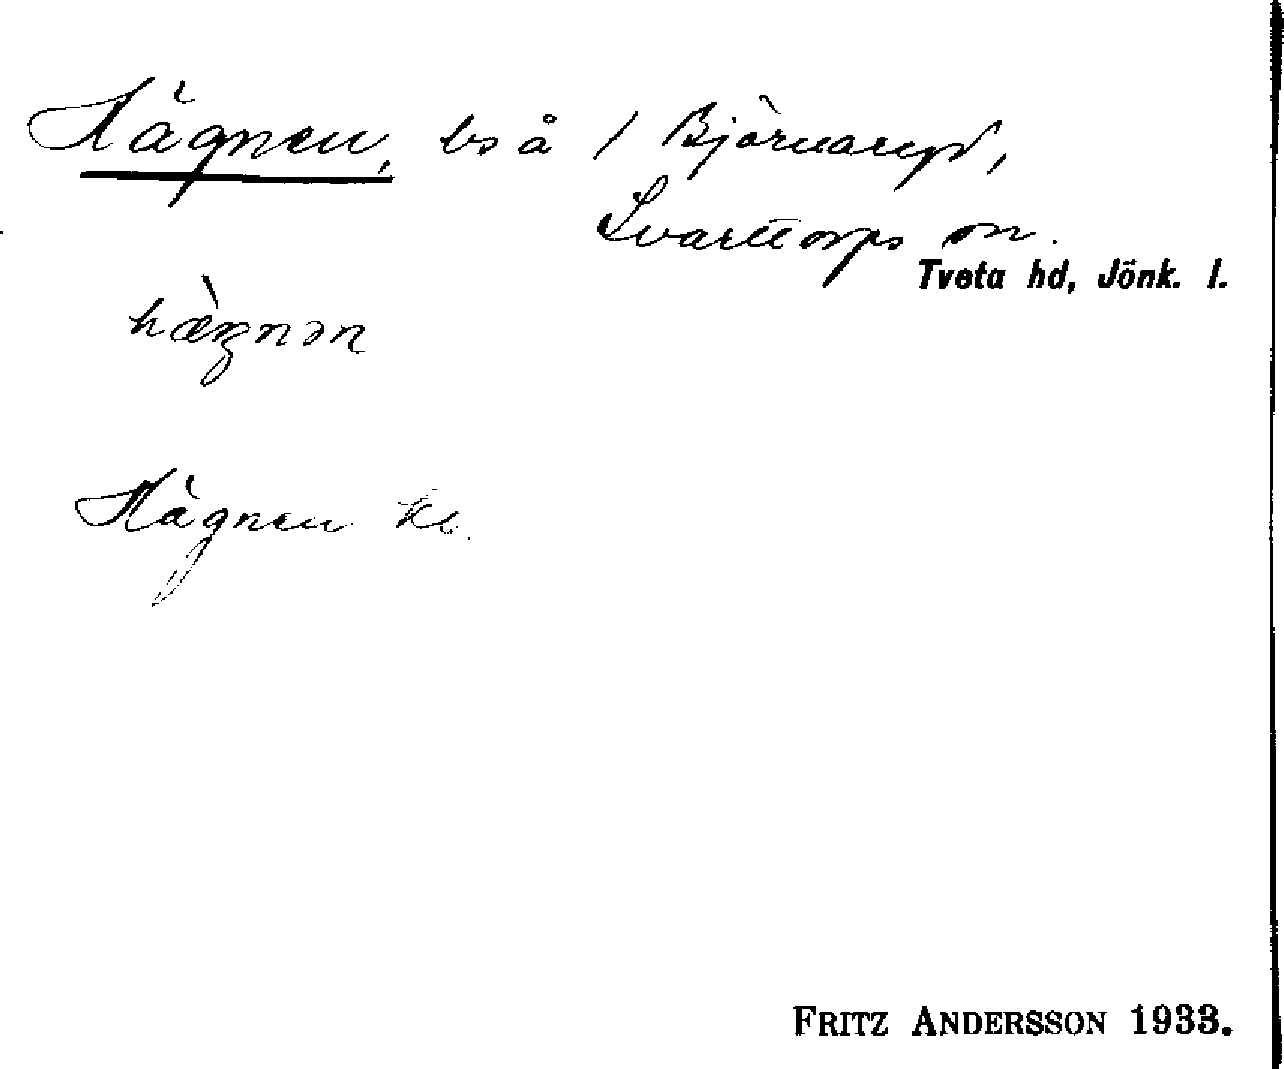 Hägnen, bs å 1 Björnaryd,
Svarttorps sn.
Tveta hd, Jönk. l.
hæ̀gnən
Hägnen Kc.
FRITZ ANDERSSON 1933.